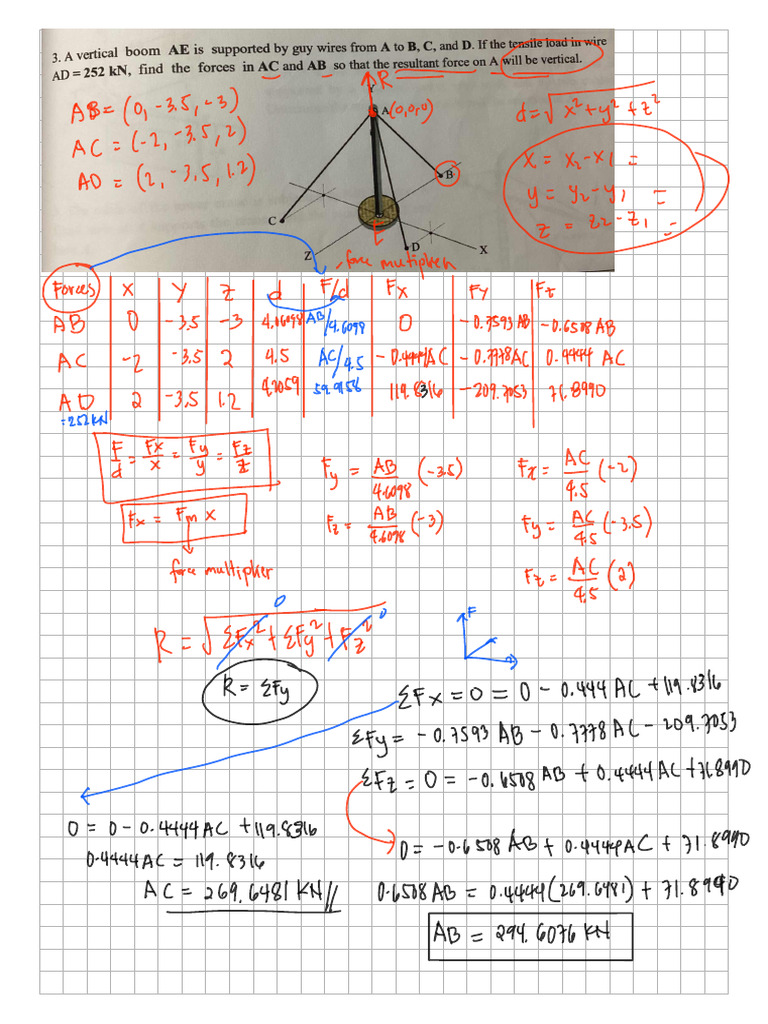 3. A vertical boom AE is supported by guy wires from A to B, C, and D. If the tensile load in wire
AD = 252 kN, find the forces in AC and AB so that the resultant force on A will be vertical.
R
Y
A(0,0,0)
AB = (0, -3.5, -3)
AC = (-2, -3.5, 2)
AD = (2, -3.5, 1.2)
d = √x² + y² + z²
x = x2 - x1 =
y = y2 - y1 =
z = z2 - z1 =
B
C
E
Z
D
X
force multiplier
Forces X Y Z d F/d Fx Fy Fz
AB 0 -3.5 -3 4.6098 AB/4.6098 0 -0.7593 AB -0.6508 AB
AC -2 -3.5 2 4.5 AC/4.5 -0.4444AC -0.7778AC 0.4444 AC
AD 2 -3.5 1.2 4.2059 59.9158 119.8316 -209.7053 71.8990
= 252 kN
F/d = Fx/x = Fy/y = Fz/z
Fy = AB/4.6098 (-3.5)
Fx = AC/4.5 (-2)
Fx = Fm x
Fz = AB/4.6098 (-3)
Fy = AC/4.5 (-3.5)
force multiplier
Fz = AC/4.5 (2)
0
0
R = √ΣFx² + ΣFy² + Fz²
F
R = ΣFy
ΣFx = 0 = 0 - 0.444 AC + 119.8316
ΣFy = -0.7593 AB - 0.7778 AC - 209.7053
ΣFz = 0 = -0.6508 AB + 0.4444 AC + 71.8990
0 = 0 - 0.4444 AC + 119.8316
0 = -0.6508 AB + 0.4444 AC + 71.8990
0.4444 AC = 119.8316
AC = 269.6481 KN//
0.6508 AB = 0.4444(269.6481) + 71.8990
AB = 294.6076 KN